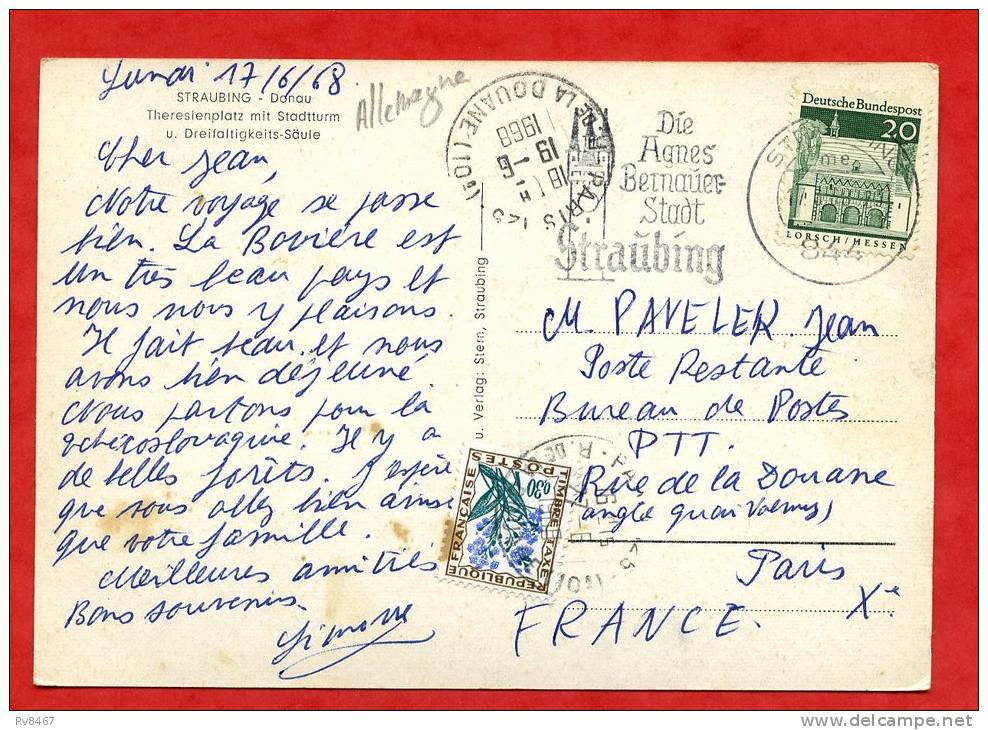 Lundi 17/6/68
Allemagne
STRAUBING - Donau
Theresienplatz mit Stadtturm
u. Dreifaltigkeits-Säule
Cher Jean,
Notre voyage se passe
bien. La Bavière est
un très beau pays et
nous nous y plaisons.
Il fait beau et nous
avons bien déjeuné.
Nous partons pour la
Tchécoslovaquie. Il y a
de belles forêts. J'espère
que vous allez bien ainsi
que votre famille.
Meilleures amitiés
Bons souvenirs.
Simone
u. Verlag: Stern, Straubing
LA DOUANE (10E)
PARIS
19 - 6
1968
Die
Agnes
Bernauer-
Stadt
Straubing
Deutsche Bundespost
20
LORSCH/HESSEN
844
M. PAVELER Jean
Poste Restante
Bureau de Postes
PTT.
Rue de la Douane
(angle quai Valmy)
Paris
Xe
FRANCE.
REPUBLIQUE FRANÇAISE
TIMBRE TAXE
POSTES
0,30
Rv8467
www.delcampe.net